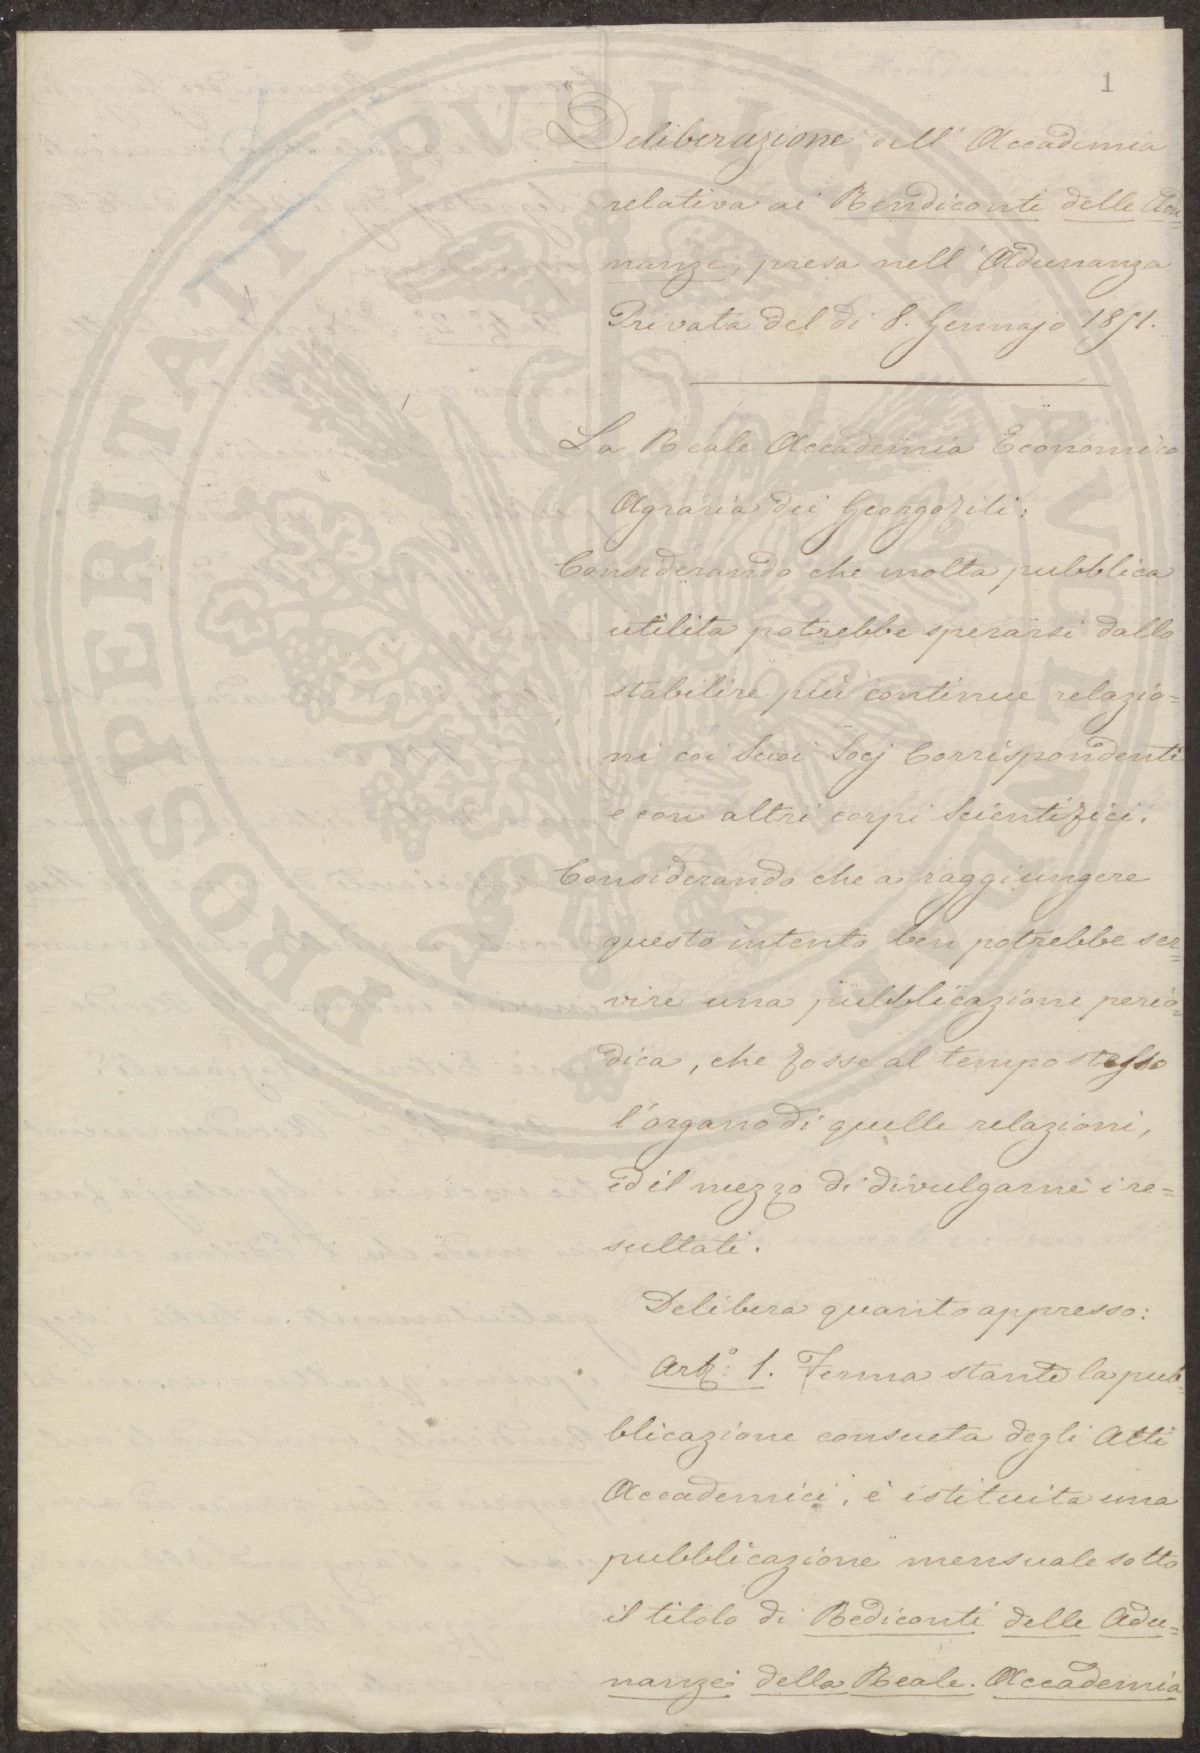 1
Deliberazione dell' Accademia
relativa ai Rendiconti delle Adu=
nanze, presa nell' Adunanza
Privata del dì 8. Gennajo 1851.
La Reale Accademia Economico
Agraria dei Georgofili:
Considerando che molta pubblica
utilita potrebbe sperarsi dallo
stabilire più continue relazio=
ni coi Suoi Socj Corrispondenti
e con altri corpi Scientifici.
Considerando che a raggiungere
questo intento ben potrebbe ser=
vire una pubblicazione perio=
dica, che fosse al tempo stesso
l'organo di quelle relazioni,
ed il mezzo di divulgarne i re=
sultati.
Delibera quanto appresso:
Art.º 1. Ferma stante la pub=
blicazione consueta degli Atti
Accademici, è istituita una
pubblicazione mensuale sotto
il titolo di Rediconti delle Adu=
nanze della Reale. Accademia
PROSPERITATI PVBLICAE AVGENDAE